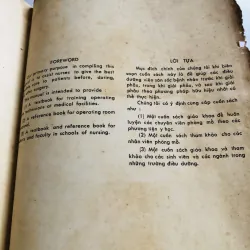 FOREWORD
primary purpose in compiling this
assist nurses to give the best
to patients before, during,
surgery.
manual is intended to provide :
textbook for training operating
of medical facilities.
reference book for operating room
textbook and reference book for
and faculty in schools of nursing.
LỜI TỰA
Mục đích chính của chúng tôi khi biên
soạn cuốn sách này là để giúp các điều
dưỡng viên săn sóc bệnh nhân trước khi giải
phẫu, trong khi giải phẫu và sau khi giải
phẫu theo phương pháp hữu hiệu nhất có
thể thực hiện.
Chúng tôi có ý định cung cấp cuốn sách
như :
(1) Một cuốn sách giáo khoa để huấn
luyện các chuyên viên phòng mổ theo các
phương tiện y học.
(2) Một cuốn sách tham khảo cho các
nhân viên phòng mổ.
(3) Một cuốn sách giáo khoa và tham
khảo cho các sinh viên và các ngành trong
những trường điều dưỡng.